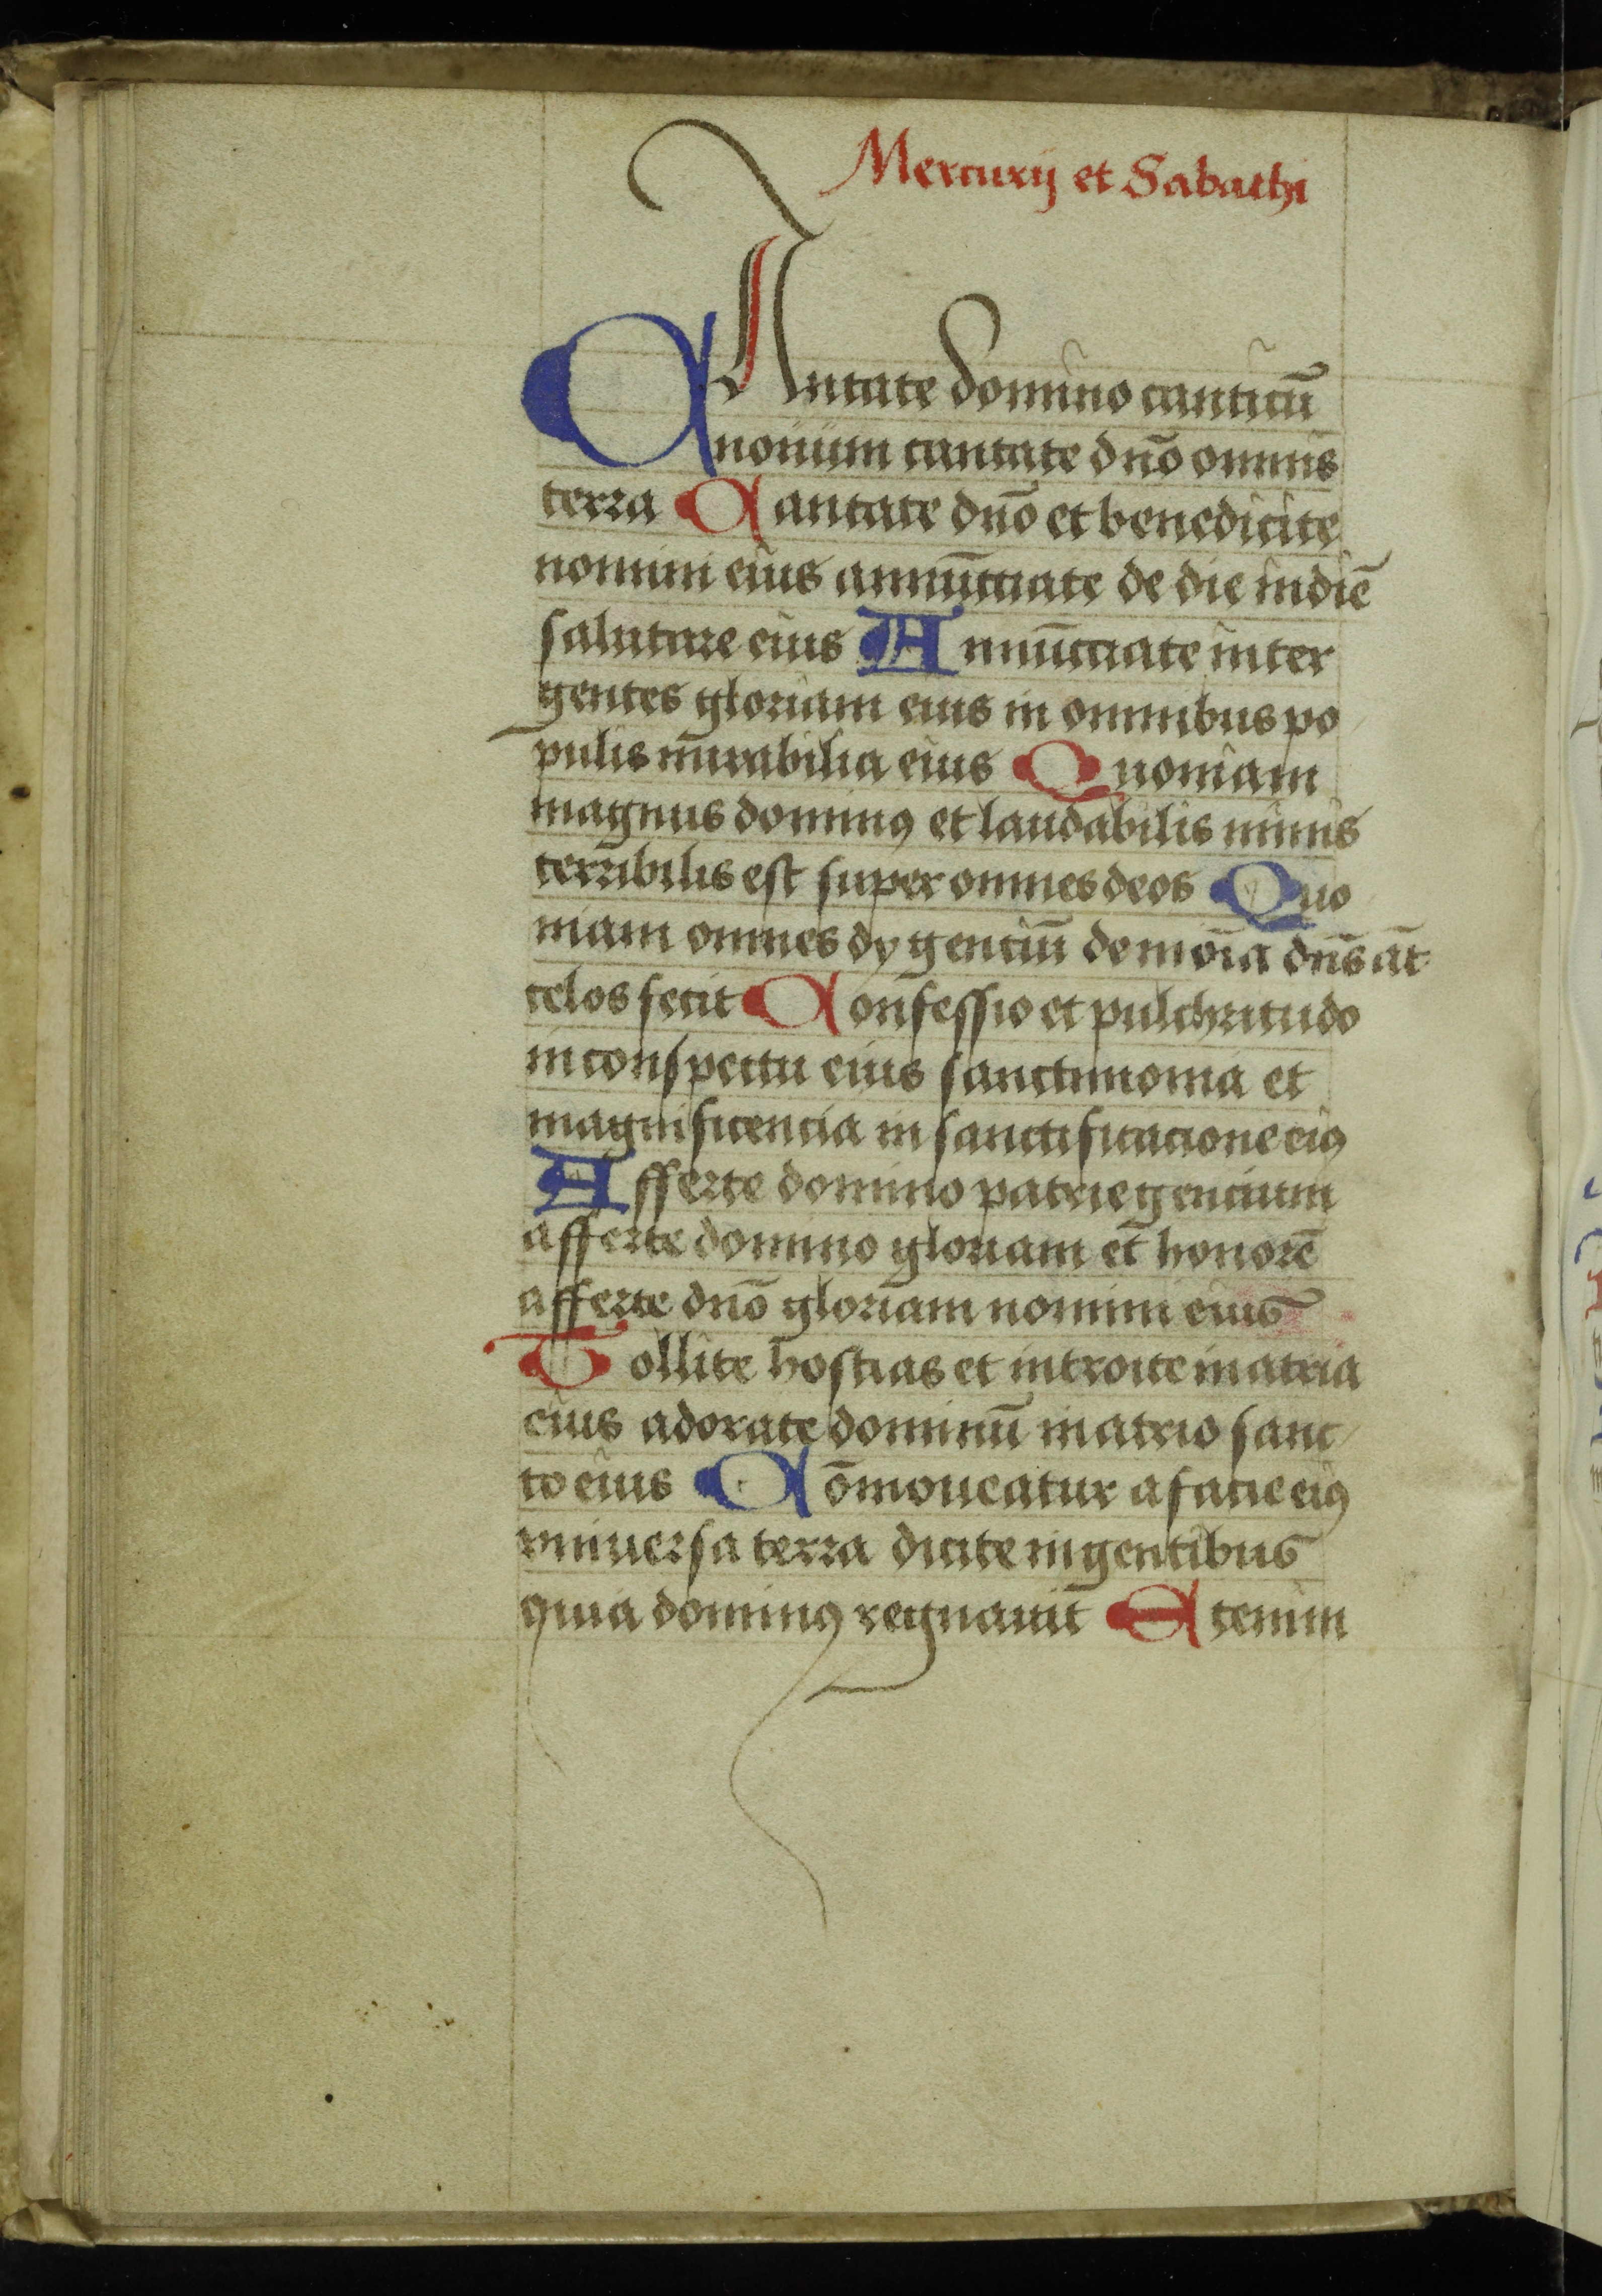 Mercurij et Sabathi
CAntate domino canticū
nouum cantate dno̅ omnis
terra Cantate dno̅ et benedicite
nomini eius annūcciate de die indiē
salutare eius Annūcciate inter
gentes gloriam eius in omnibus po
pulis mirabilia eius Quoniam
magnus dominꝰ et laudabilis nimis
terribilis est super omnes deos Quo
niam omnes dy genciū demōia dn̄s āt
celos fecit Confessio et pulchritudo
in conspectu eius sanctimonia et
magnificencia in sanctificacione eiꝰ
Afferte domino patrie gencium
afferte domino gloriam et honorē
afferte dno̅ gloriam nomini eius
Tollite hostias et introite in atria
eius adorate dominū in atrio sanc
to eius Cōmoueatur a facie eiꝰ
vniuersa terra dicite in gentibus
quia dominꝰ regnauit Etenim